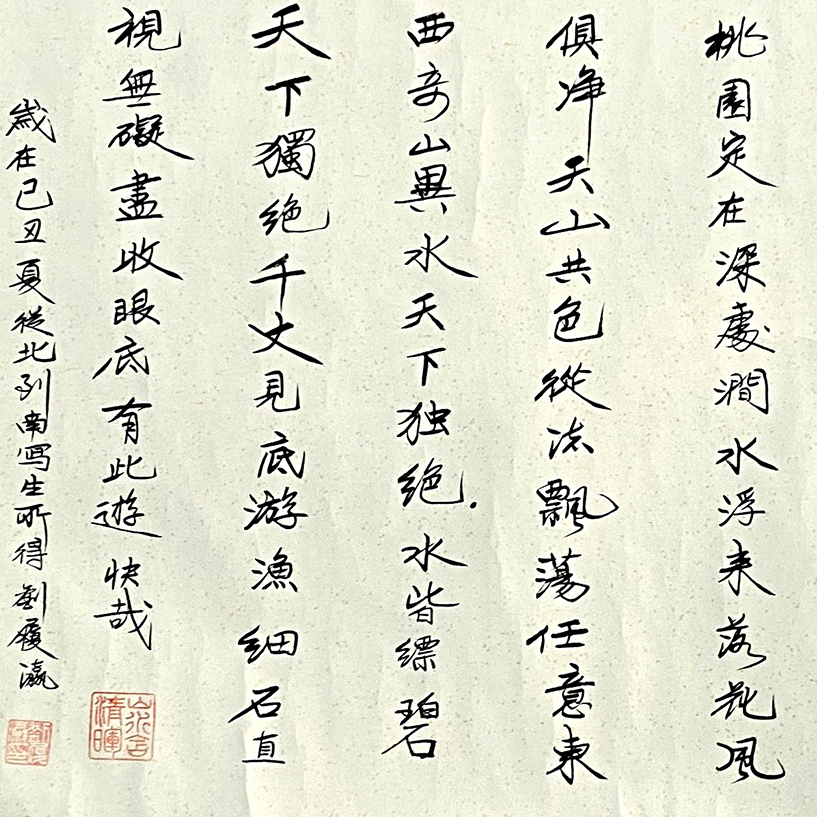 桃園定在深處澗水浮来落花風
俱净天山共色從流飄蕩任意東
西奇山異水天下独绝.水皆缥碧
天下獨绝千丈見底游漁细石直
視無礙盡收眼底有此遊快哉
歲在己丑夏從北到南寫生所得劉履瀛
山水含清暉